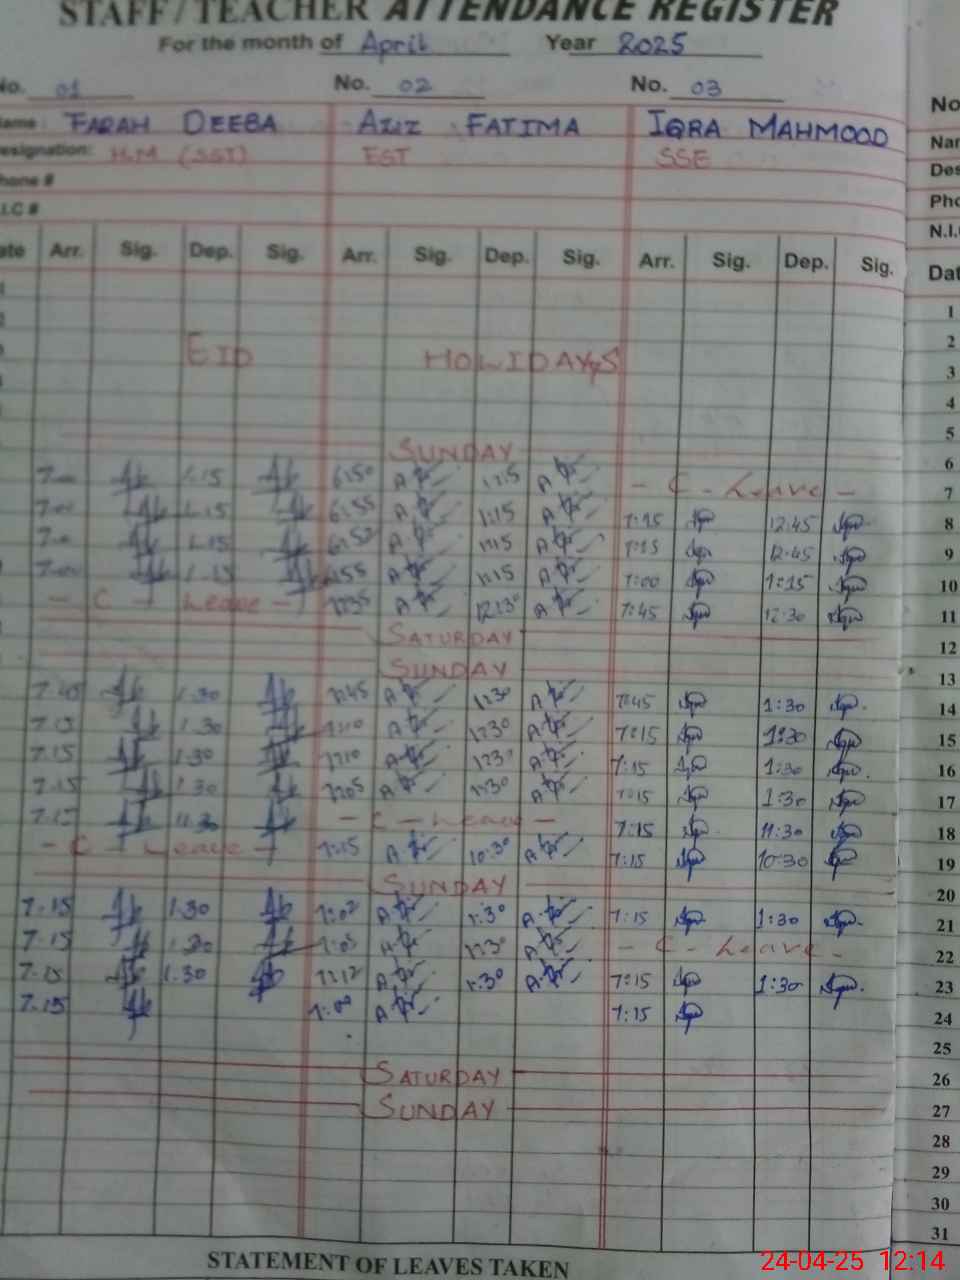 STAFF / TEACHER ATTENDANCE REGISTER
For the month of April Year 2025
No. 01 No. 02 No. 03 No
Name: FARAH DEEBA AZIZ FATIMA IQRA MAHMOOD Nar
Designation: H.M (SST) EST SSE Des
Phone # Pho
N.I.C # N.I.
Date Arr. Sig. Dep. Sig. Arr. Sig. Dep. Sig. Arr. Sig. Dep. Sig. Dat
1
2
EID HOLIDAYS 3
4
5
SUNDAY 6
1.15 6:50 - C - Leave - 7
1.15 6:55 1:15 7:15 12:45 8
1.15 6:52 1:15 7:15 12:45 9
1.15 1:15 7:00 1:15 10
- C - Leave - 12:30 7:45 12:30 11
SATURDAY 12
SUNDAY 13
7.45 1.30 7:45 1:30 7:45 1:30 14
7.15 1.30 7:10 1:30 7:15 1:30 15
7.15 1.30 7:10 7:15 1:30 16
7.15 1.30 7:05 1:30 7:15 1:30 17
7.15 11.30 - C - Leave - 7:15 11:30 18
- C - Leave - 7:15 10:30 7:15 10:30 19
SUNDAY 20
7.15 1.30 7:02 1:30 7:15 1:30 21
7.15 1.30 7:05 1:30 - C - Leave - 22
7.15 1.30 7:12 1:30 7:15 1:30 23
7.15 7:00 7:15 24
25
SATURDAY 26
SUNDAY 27
28
29
30
31
STATEMENT OF LEAVES TAKEN
24-04-25 12:14